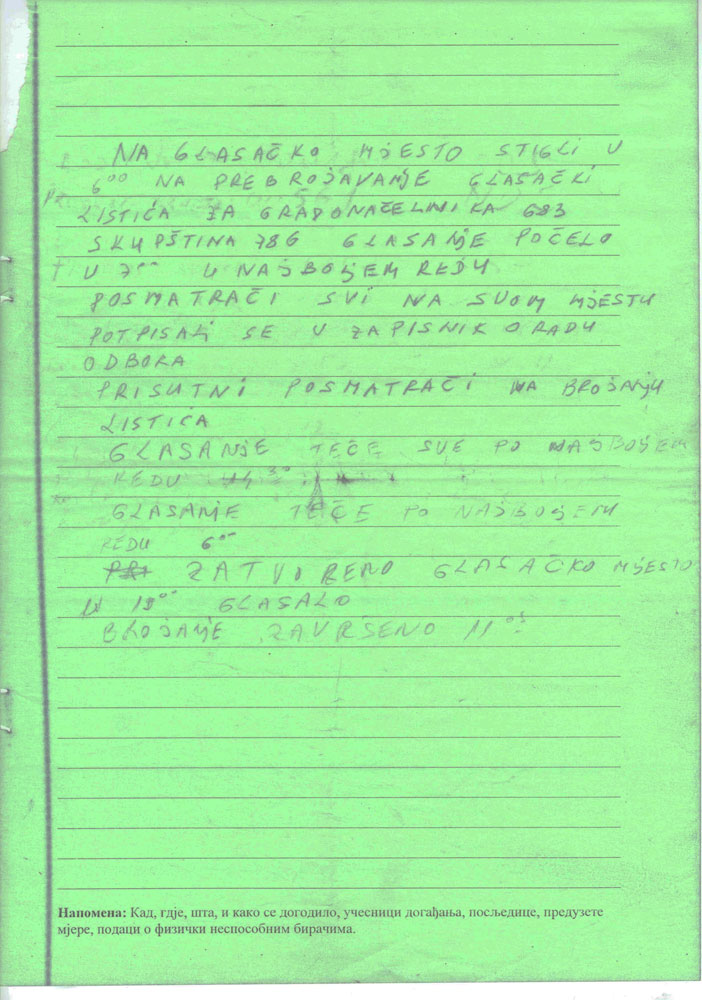 NA GLASAČKO MJESTO STIGLI U
6⁰⁰ NA PREBROJAVANJE GLASAČKI
LISTIĆA ZA GRADONAČELNIKA 683
SKUPŠTINA 786 GLASANJE POČELO
U 7⁰⁰ U NAJBOLJEM REDU
POSMATRAČI SVI NA SVOM MJESTU
POTPISALI SE U ZAPISNIK O RADU
ODBORA
PRISUTNI POSMATRAČI NA BROJANJU
LISTIĆA
GLASANJE TEČE SVE PO NAJBOLJEM
REDU
GLASANJE TEČE PO NAJBOLJEM
REDU 6⁰⁰
ZATVORENO GLASAČKO MJESTO
U 19⁰⁰ GLASALO
BROJANJE ZAVRŠENO 11⁰⁵
Напомена: Кад, гдје, шта, и како се догодило, учесници догађања, посљедице, предузете
мјере, подаци о физички неспособним бирачима.